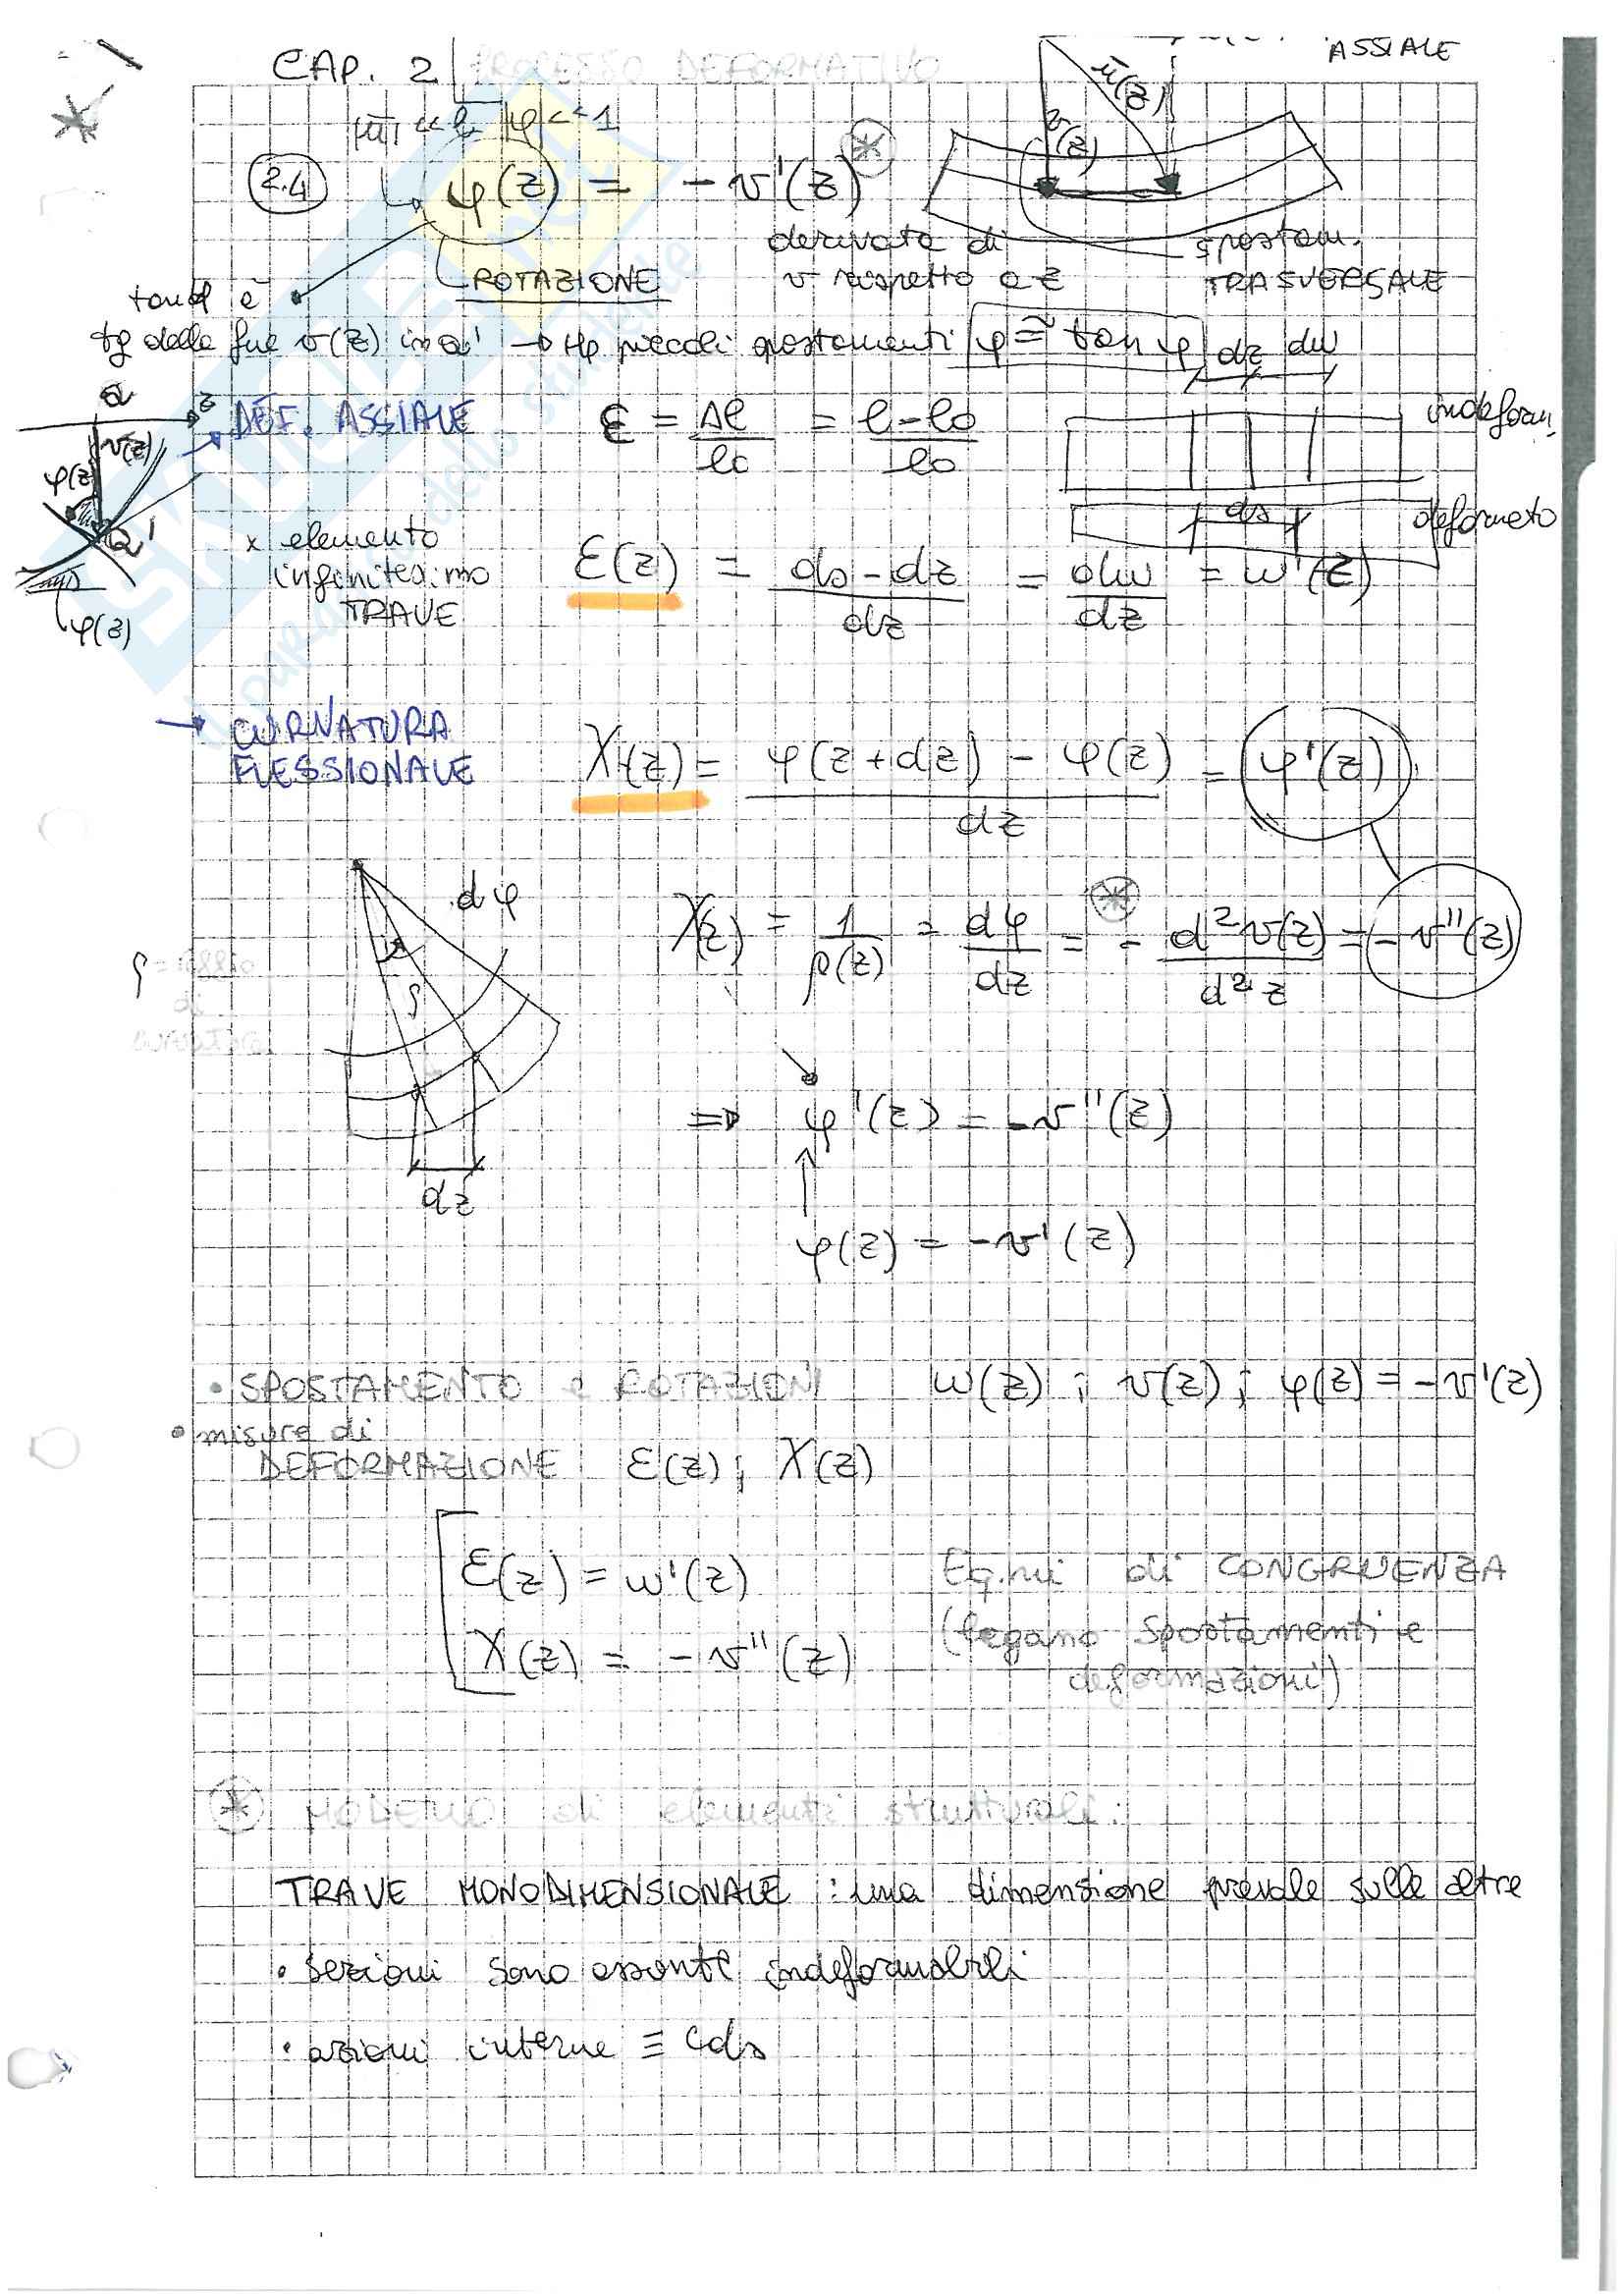 CAP. 2 PROCESSO DEFORMATIVO
ASSIALE
|ū| << l |φ| << 1
ū(z)
v(z)
2.4 φ(z) = - v'(z)
ROTAZIONE
derivata di
v rispetto a z
spostam.
TRASVERSALE
tanφ è
tg della fne v(z) in Q' → Hp piccoli spostamenti φ ≅ tan φ
dz dw
Q z
v(z)
φ(z)
Q'
φ(z)
→ DEF. ASSIALE ε = Δl/l0 = l-l0/l0
indeform.
ds
deformato
x elemento
infinitesimo
TRAVE
ε(z) = ds-dz/dz = dw/dz = w'(z)
→ CURVATURA
FLESSIONALE
χ(z) = φ(z+dz) - φ(z)/dz = φ'(z)
dφ
ρ
ρ = raggio
di
curvatura
χ(z) = 1/ρ(z) = dφ/dz = - d²v(z)/d²z = - v''(z)
dz
=> φ'(z) = -v''(z)
φ(z) = -v'(z)
• SPOSTAMENTO e ROTAZIONI w(z) ; v(z) ; φ(z) = -v'(z)
• misure di
DEFORMAZIONE ε(z) ; χ(z)
ε(z) = w'(z)
Eq.ni di CONGRUENZA
χ(z) = - v''(z)
(legano spostamenti e
deformazioni)
MODELLO di elementi strutturali:
TRAVE MONODIMENSIONALE : una dimensione prevale sulle altre
• sezioni sono assunte indeformabili
• azioni interne ≡ Cds